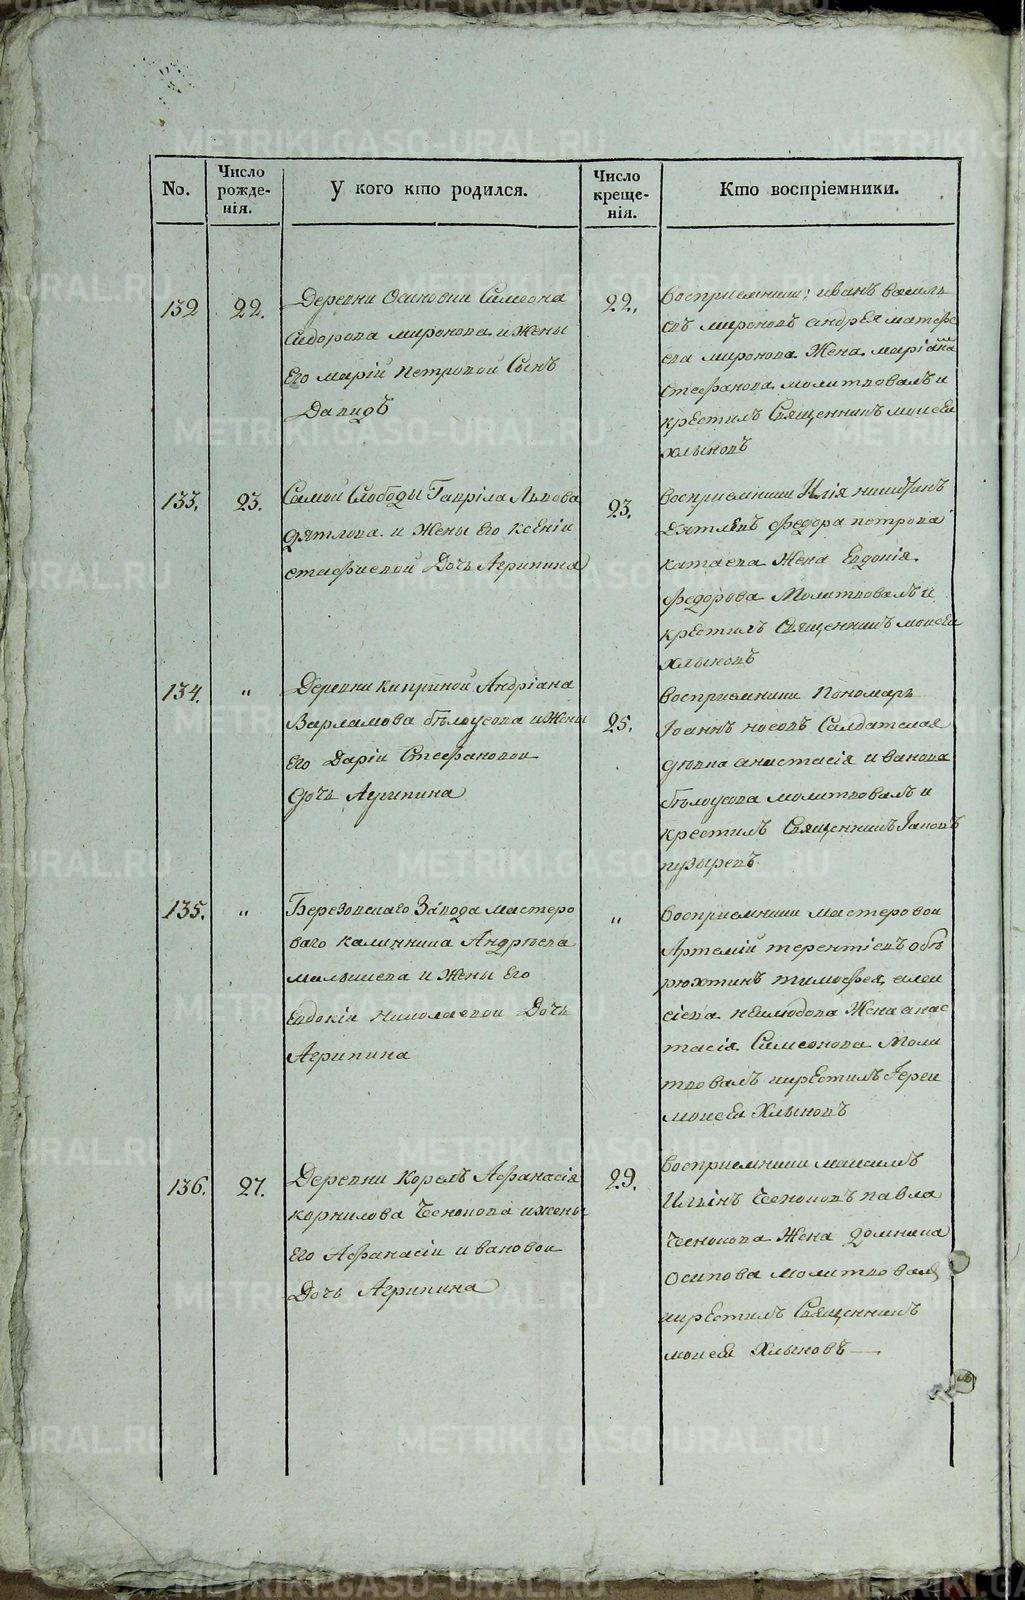 No.
Число рожде-нія.
У кого кто родился.
Число креще-нія.
Кто воспріемники.
132
22.
Деревни Осиновки Симеона
Сидорова миронова и Жены
Его маріи Петровой Сынъ
Давидъ
22.
Восприемники; иванъ василь
евъ мироновъ андрея матфе
ева миронова Жена маріана
Стефанова молитвовалъ и
крестилъ Священникъ моисей
хлыновъ
133.
23.
Самой Слободы Гавріла Львова
дятлова и Жены его ксеніи
Дочь Агрипина
23.
восприемники Илія
дятлевъ федора петрова
катаева Жена Евдокія
федорова Молитвовалъ и
крестилъ Священникъ моисей
хлыновъ
134.
"
Деревни киприной Андріана
Варламова бѣлоусова и Жены
Его Даріи Стефановой
дочь Агрипина
25.
восприемники Пономарь
Іоаннъ носовъ Салдатская
дѣвка анастасія иванова
бѣлоусова молитвовалъ и
крестилъ Священникъ Іаковъ
пузыревъ
135.
"
Березовскаго Завода мастеро
ваго калинника Андрѣева
малышева и Жены Его
Евдокіи николаевой Дочь
Агрипина
"
восприемники мастеровой
Артемій терентіевъ обѣ
рюхтинъ тимофея алек
сіева нелюбова Жена анас
тасія Симеонова Моли
твовалъ икрестилъ Іерей
моисей Хлыновъ
136.
27.
Деревни Корелъ Афанасія
корнилова Чеснокова ижены
Его Афанасіи ивановой
Дочь Агрипина
29.
восприемники максимъ
Ильинъ Чесноковъ павла
Чеснокова Жена домника
осипова молитвовалъ
икрестилъ Священникъ
моисей Хлыновъ